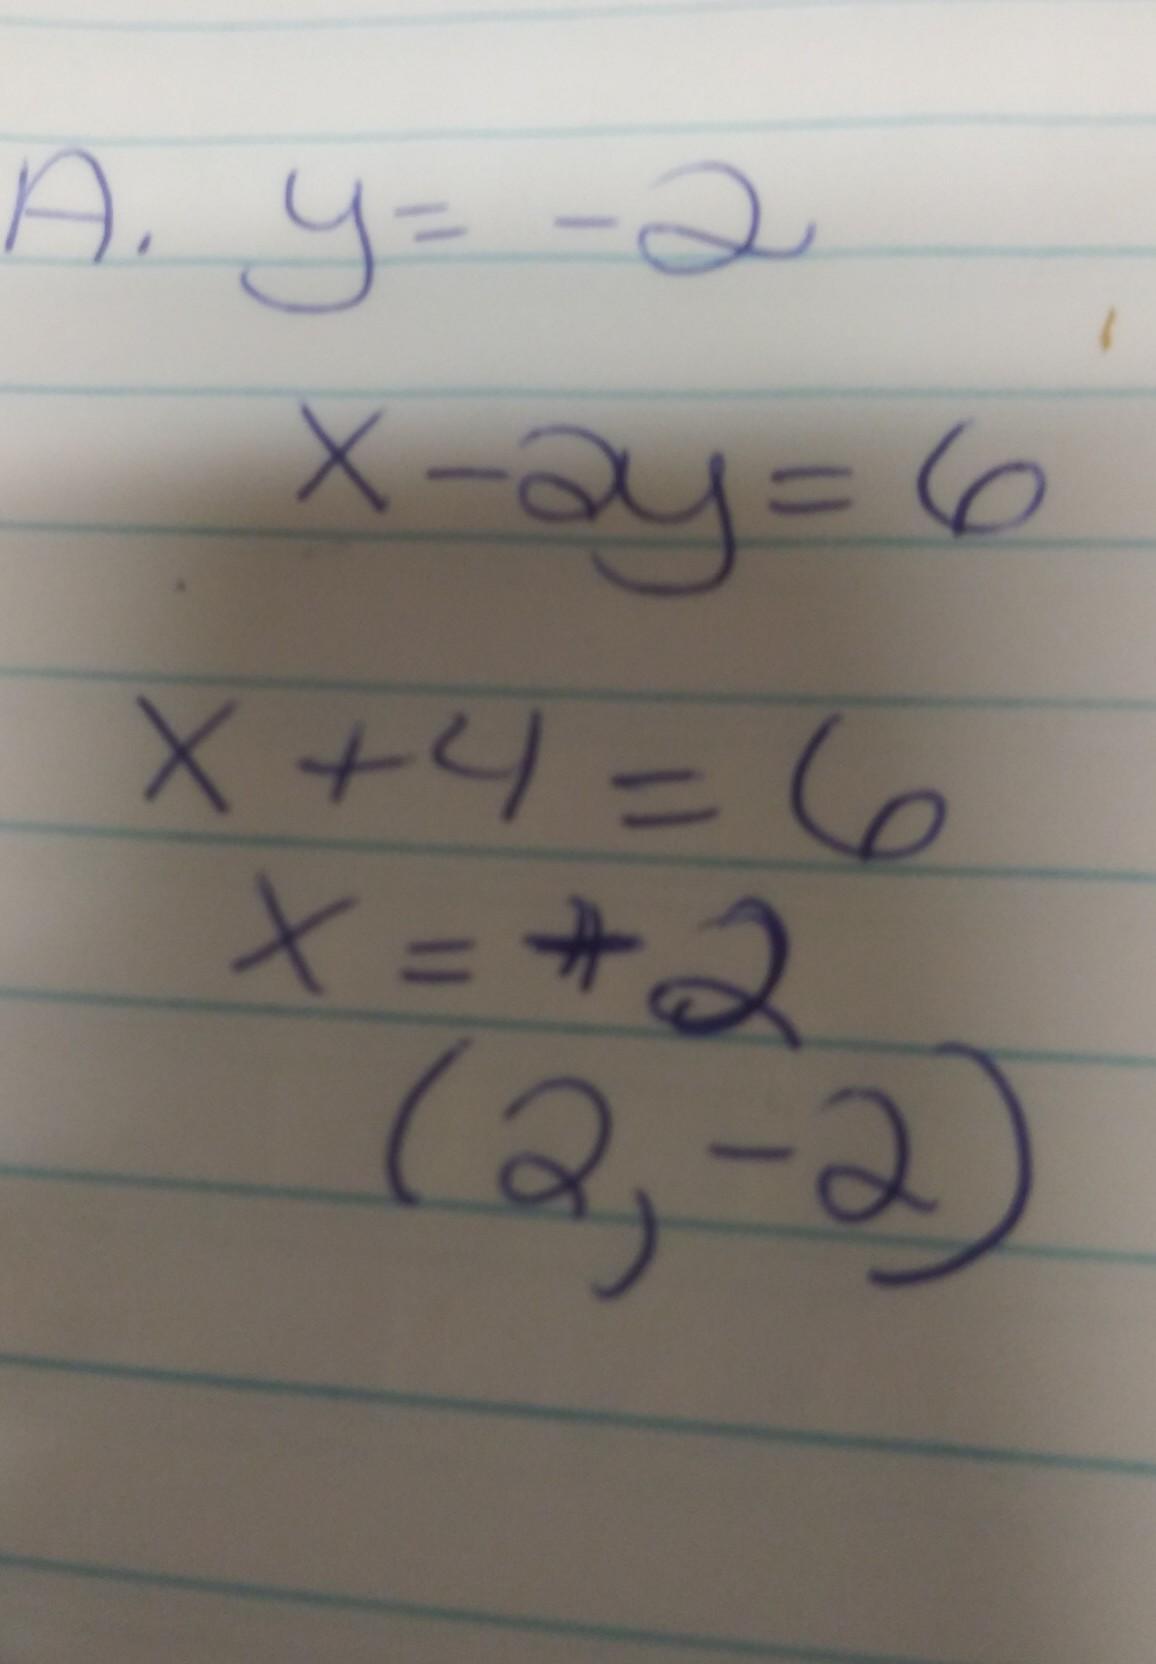 A. y = -2
x - 2y = 6
x + 4 = 6
x = 2
(2, -2)